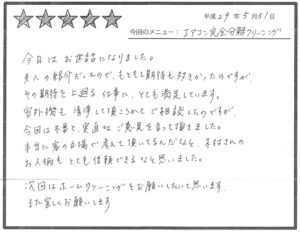 平成29年5月31日
今回のメニュー：エアコン完全分解クリーニング
今日はお世話になりました。
友人の紹介だったので、もともと期待も大きかったのですが
その期待を上回る仕事に、とても満足しています。
室外機も清掃して頂こうかとご相談したのですが、
今回は不要と、実直なご意見を言って頂きました。
本当に客の立場で考えて頂いてるんだなと、木村さんの
お人柄もとても信頼できるなと思いました。
次回はホームクリーニングをお願いしたいと思います。
また宜しくお願いします